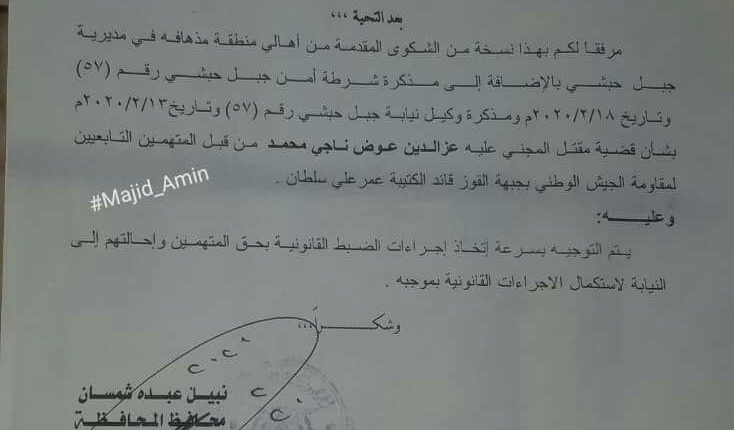 بعد التحية ،،،
مرفقاً لكم بهذا نسخة من الشكوى المقدمة من أهالي منطقة مذهافه في مديرية
جبل حبشي بالإضافة إلى مذكرة شرطة أمن جبل حبشي رقم (٥٧)
وتاريخ ٢٠٢٠/٢/١٨م ومذكرة وكيل نيابة جبل حبشي رقم (٥٧) وتاريخ ٢٠٢٠/٢/١٣م
بشأن قضية مقتل المجني عليه عزالدين عوض ناجي محمد من قبل المتهمين التابعيين
لمقاومة الجيش الوطني بجبهة القوز قائد الكتيبة عمر علي سلطان .
#Majid_Amin
وعليــه:
يتم التوجيه بسرعة إتخاذ إجراءات الضبط القانونية بحق المتهمين وإحالتهم إلى
النيابة لاستكمال الاجراءات القانونية بموجبه .
وشكــراً،،،
نبيل عبده شمسان
محافظ المحافظة